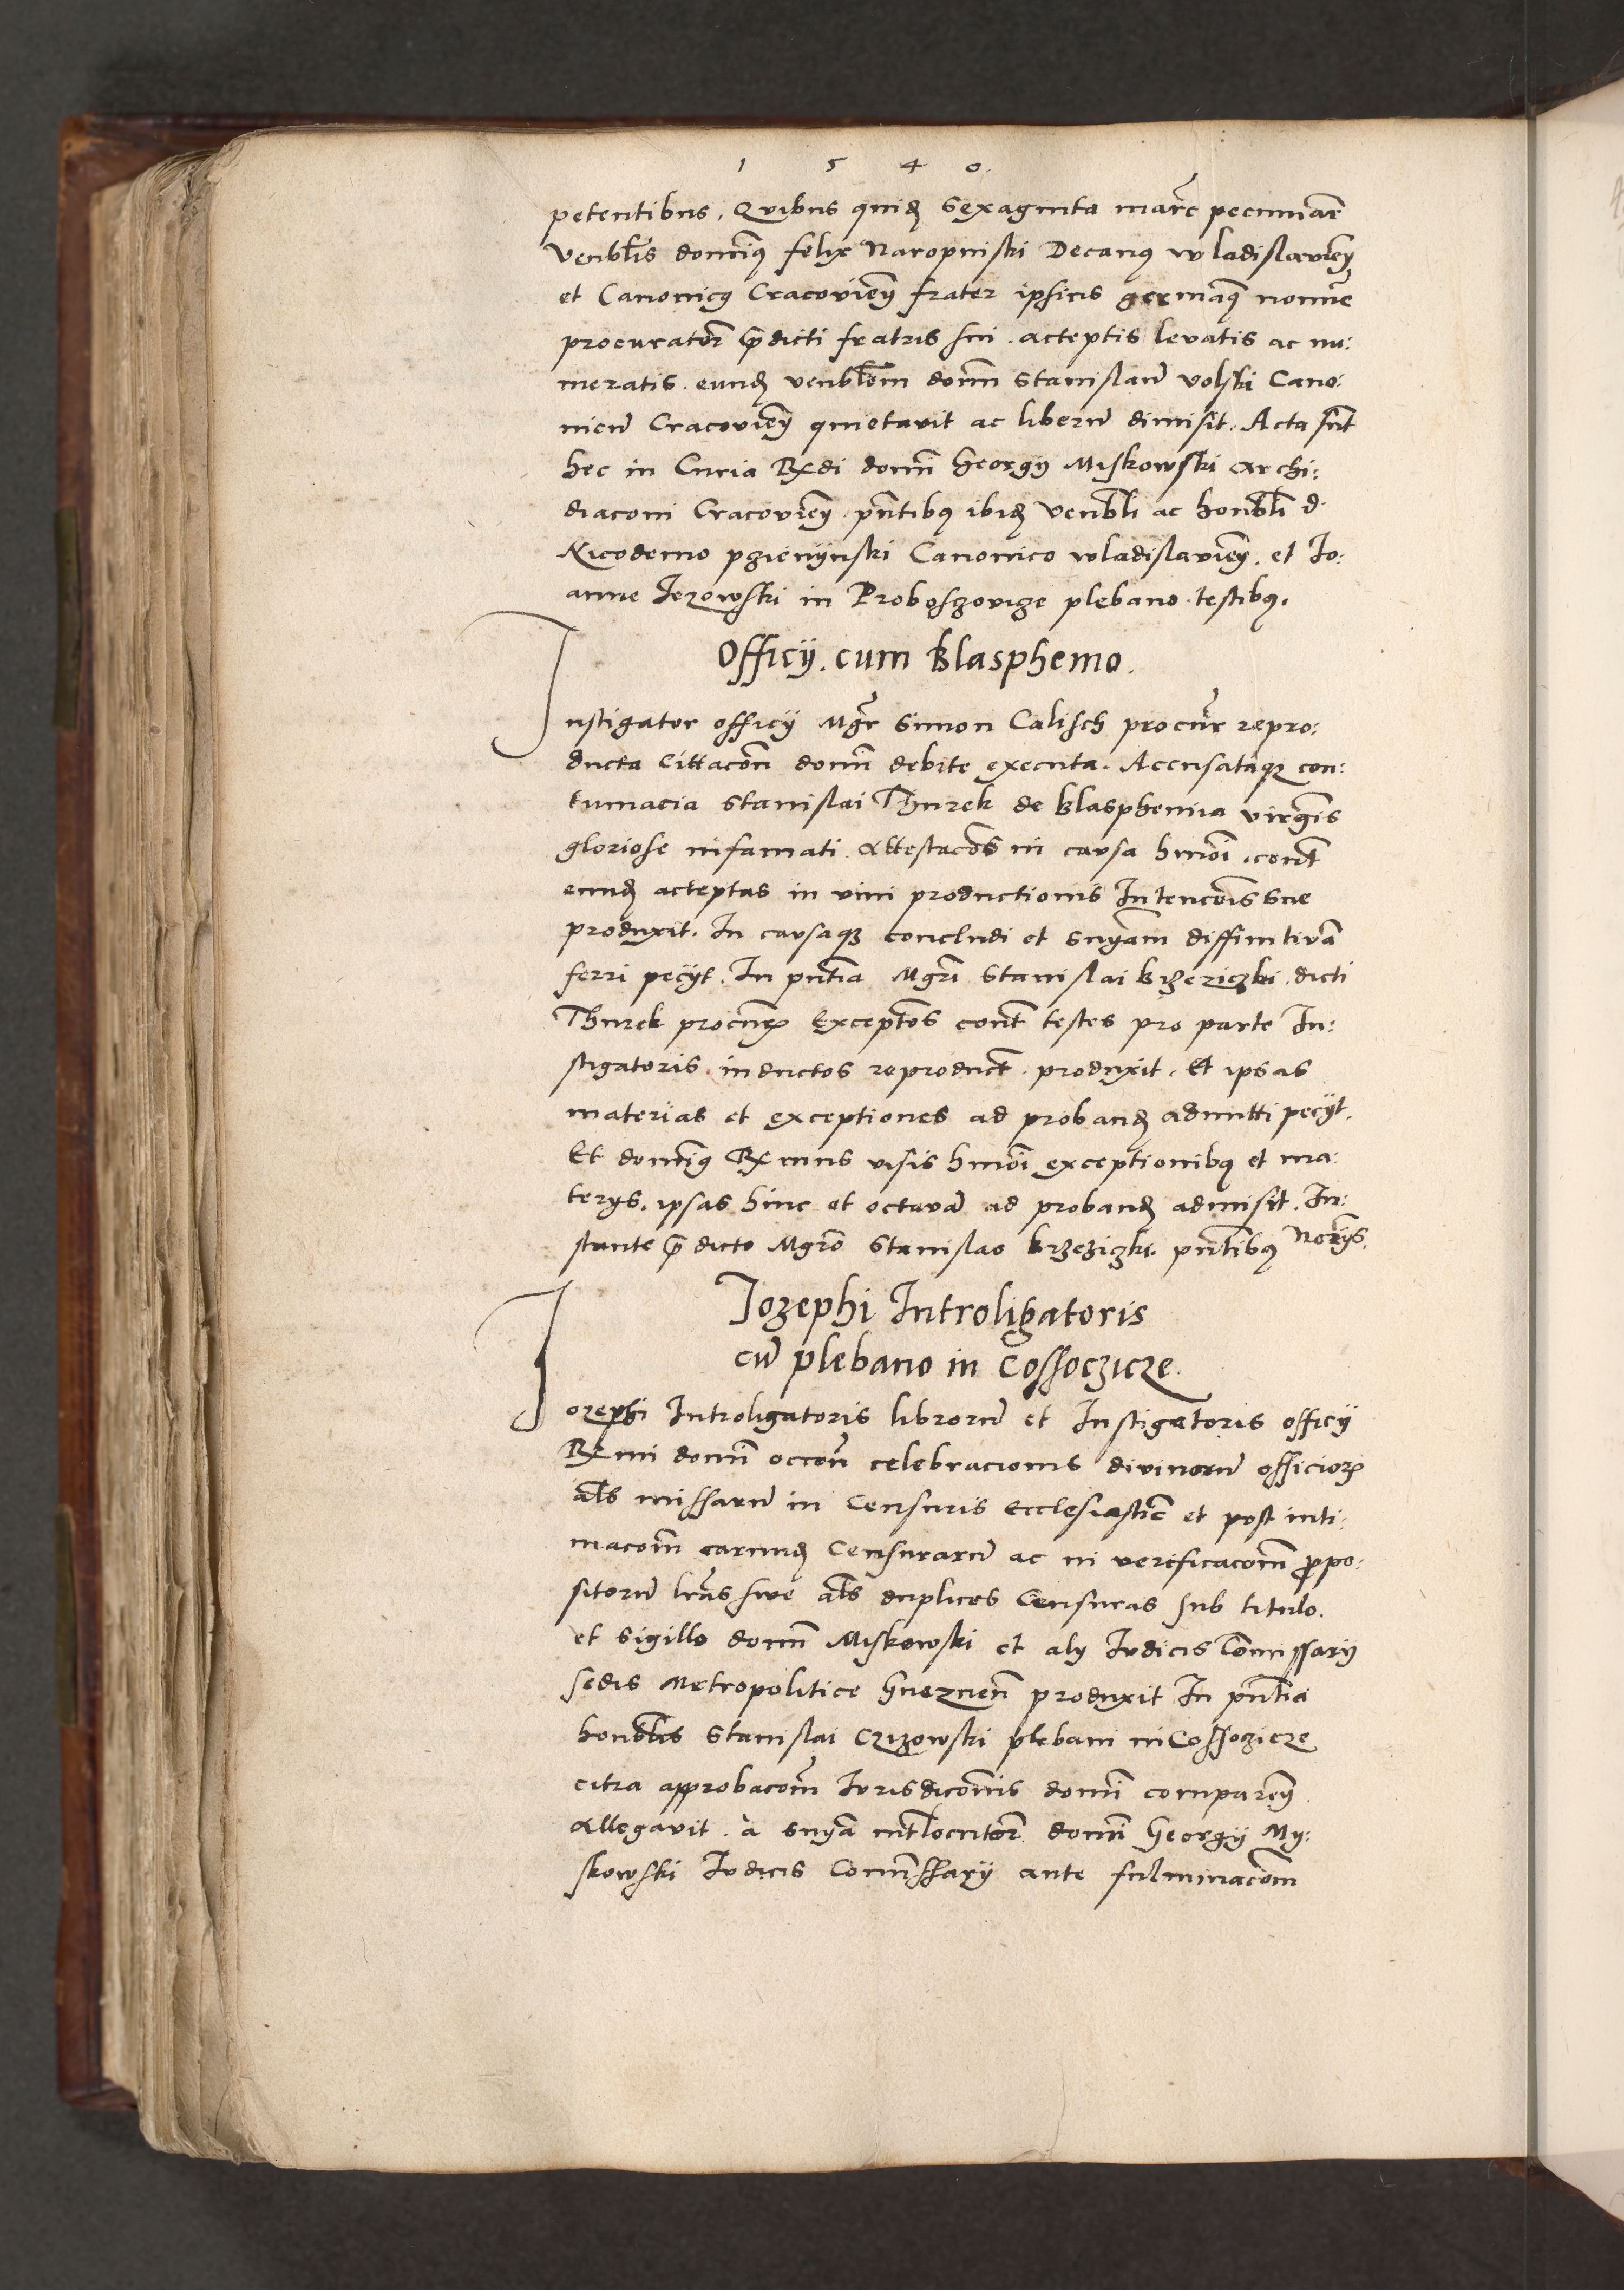 1 5 4 0.
petentibus. Quibus quidę Sexaginta marc̄ pecuniar̄
Venblīs domin9 felix Naropinski Decan9 wladislavien̄
et Canonic9 Cracovien̄ frater ipsius german9 nomīe
procurator̄ p̄dicti fratris sui. acceptis levatis ac nu:
meratis. eundę venblēm domn̄ Stanislaū volski Cano:
nicū Cracovien̄ quietavit ac liberū dimisit. Acta sūt
hec in Curia Rx̄di domn̄i Georgij Miskowski archi:
diaconi Cracovien̄. pn̄tibus ibidę Venblī ac honblī d.
Nicodemo pzienÿnski Canonico wladislavien̄. et Io:
anne Iezowski in Proboszovize plebano. testibus.
Officÿ. cum Blasphemo.
Instigator officÿ Mgr̄ Simon Calisch procur̄ repro:
ducta Cittacōn domn̄i debite executa. Accusataque con:
tumacia Stanislai Thurek de Blasphemia virginīs
gloriose infamati. Attestacōes in causa hmōi. cont̄
eundę acceptas in vim productionis Intencōis sue
produxit. In causaque concludi et snīam diffinitivā
ferri pecÿt. In pn̄tia Mgr̄i Stanislai Brzeziczki. dicti
Thurek procur̄is Exceptōes cont̄ testes pro parte In:
stigatoris inductos reproduct̄. produxit. Et ipsas
materias et exceptiones ad probandę admitti pecÿt.
Et domin9 Rx̄mus visis hmōi exceptionibus et ma:
terÿs. ipsas hinc et octavā ad probandę admisit. In:
stante p̄dicto Mgr̄o Stanislao Brzeziczki. pn̄tibus Notr̄ÿs.
Iozephi Introligatoris
cū plebano in Cossoczicze.
Iozephi Introligatoris librorū et Instigatoris officÿ
Rx̄mi domn̄i occōn̄e celebracionis divinorū officiorum
als̄ missarū in Censuris Ecclesiastic̄ et post inti:
macōm earundę Censurarū ac in verificacōm p̄po:
sitorū lrās sive als̄ duplices Censuras sub titulo.
et sigillo domn̄i Miskowski et alÿ Iudicis Com̄issarÿ
sedis Metropolitice Gneznen̄ produxit In pn̄tia
honblīs Stanislai Czizowski plebani in Cossoczicze
citra approbacōm Iurisdicōnis domn̄i comparen̄
allegavit. à snīa intlocutor̄ domn̄i Georgÿ My:
skowski Iudicis Com̄issarÿ ante fulminacōm